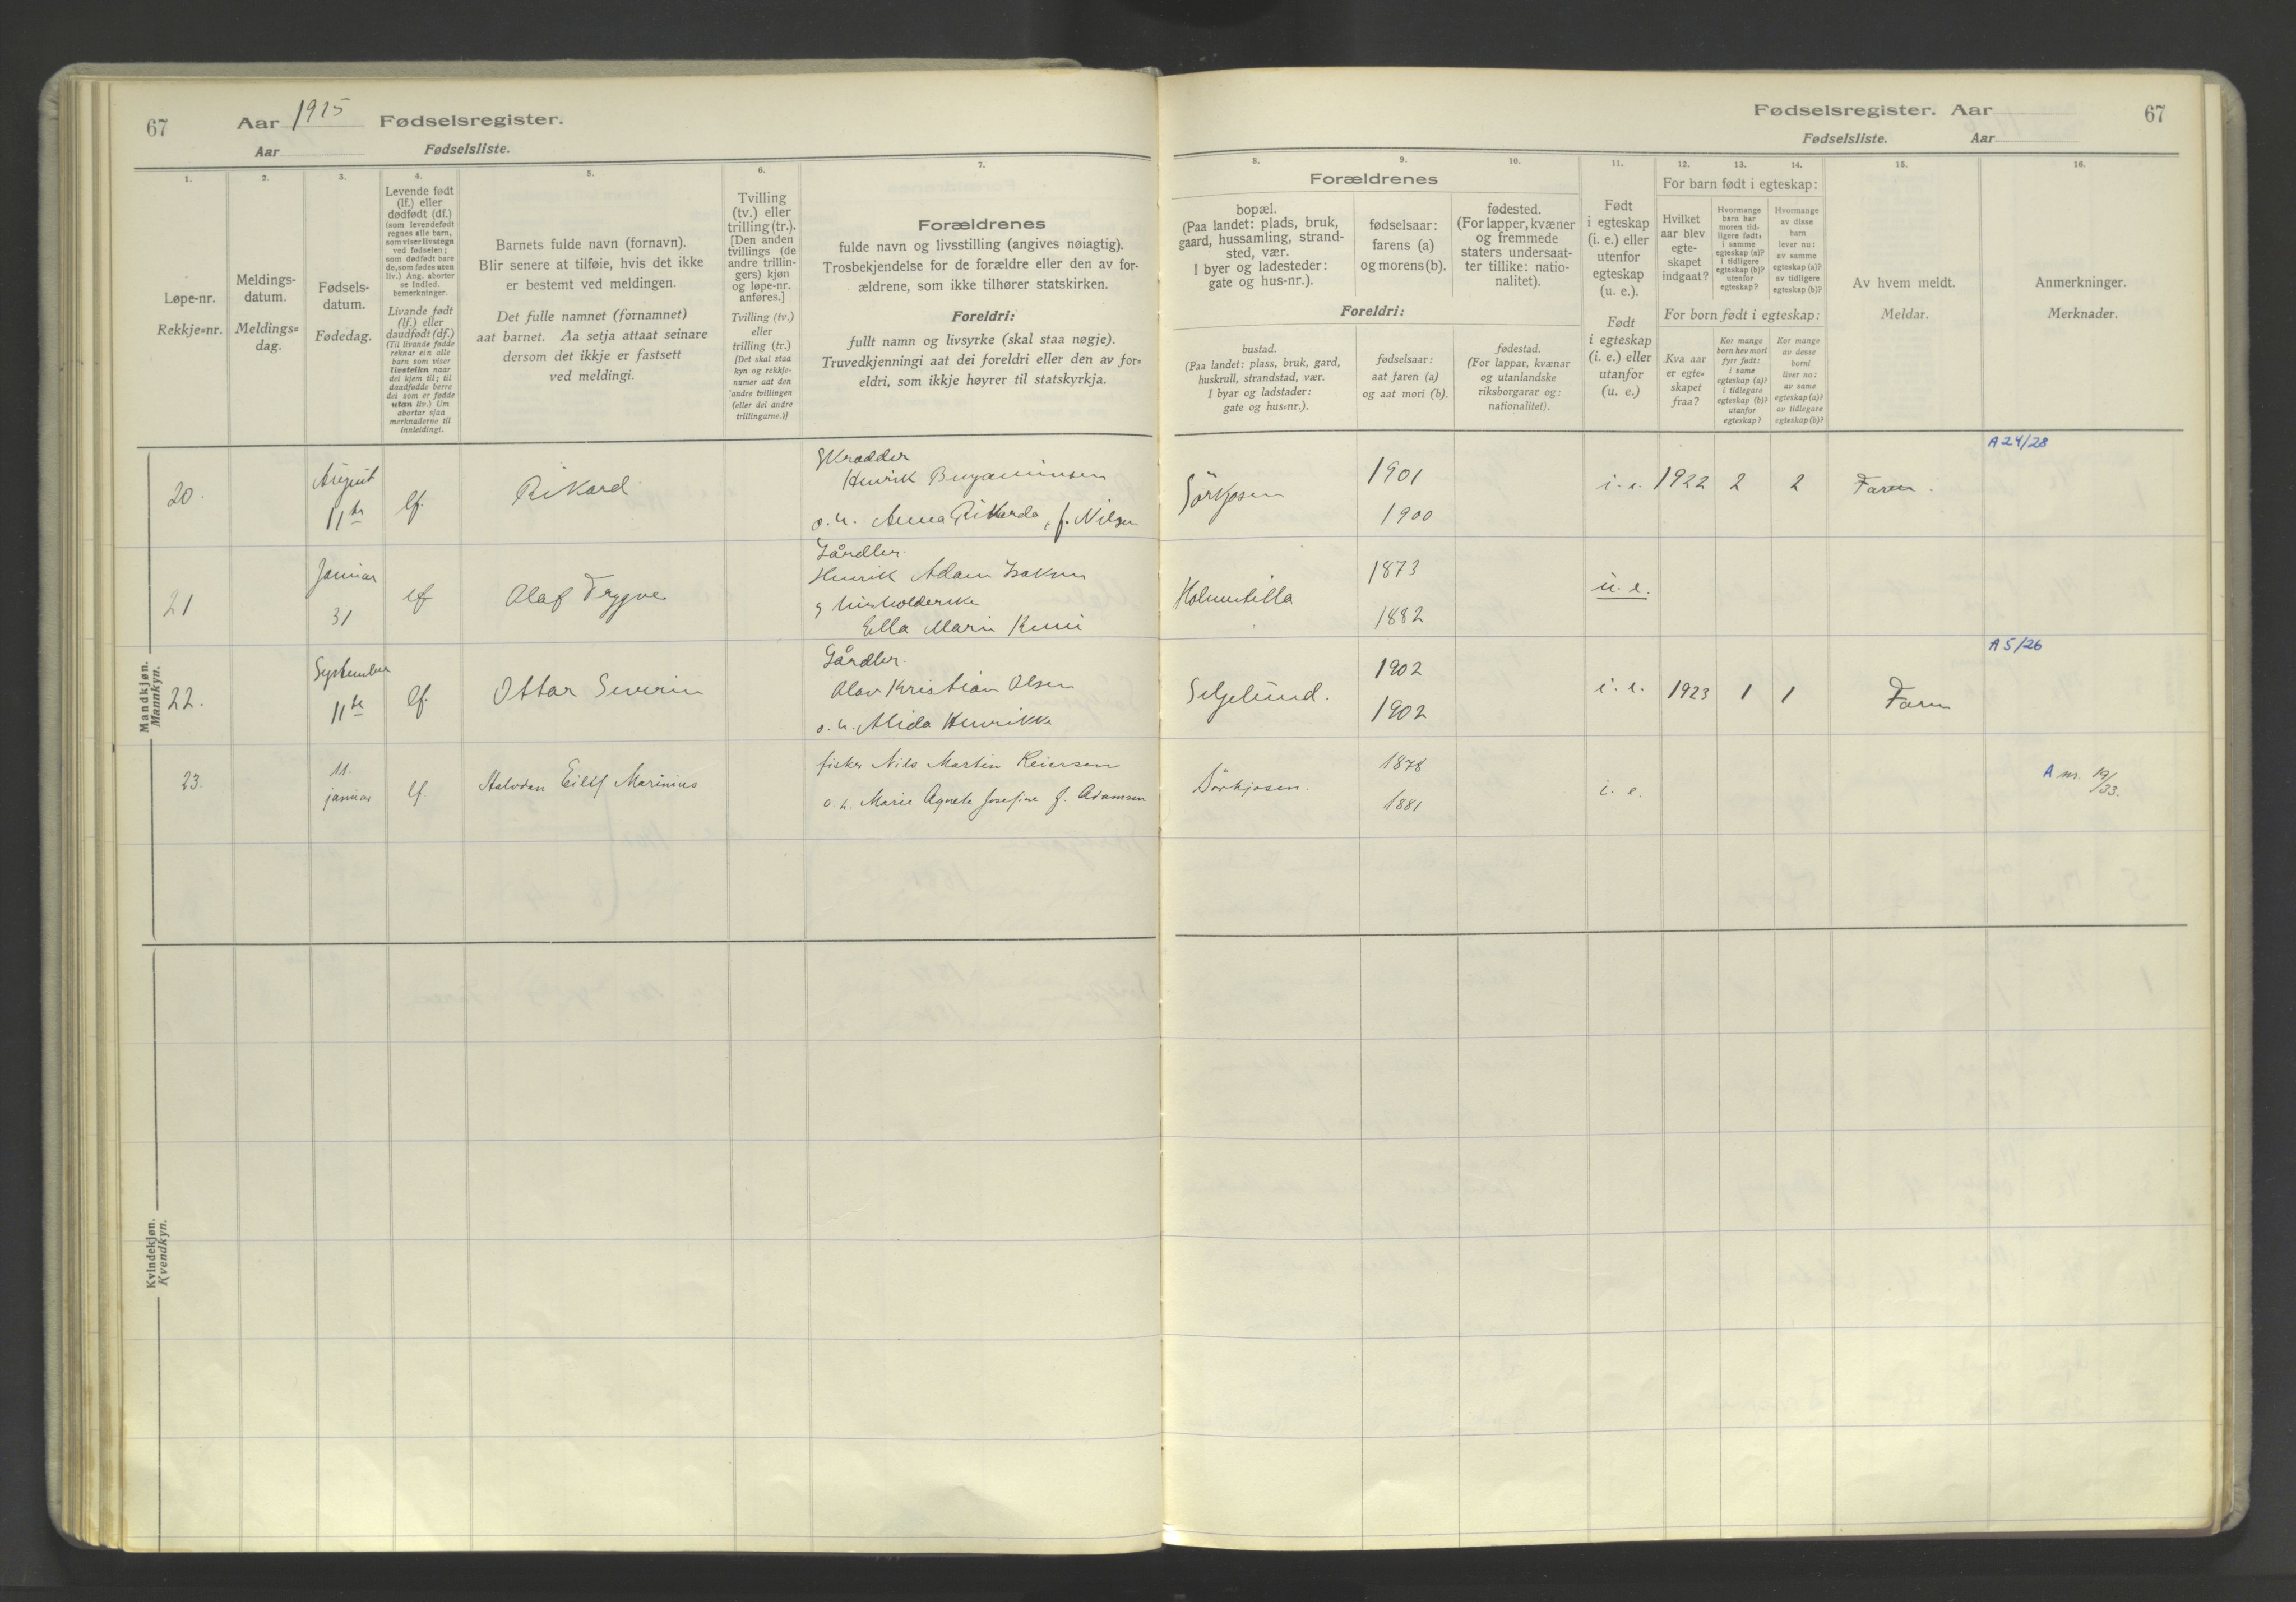 67
Aar 1925 Fødselsregister.
Aar Fødselsliste.
1.
2.
3.
4.
5.
6.
7.
Løpe-nr.
Rekkje=nr.
Meldings-
datum.
Meldings=
dag.
Fødsels-
datum.
Fødedag.
Levende født
(lf.) eller
dødfødt (df.)
(som levendefødt
regnes alle barn,
som viser livstegn
ved fødselen;
som dødfødt bare
de, som fødes uten
liv.) Ang. aborter
se indled.
bemerkninger.
Livande født
(lf.) eller
daudfødt (df.)
(Til livande fødde
reknar ein alle
barn som viser
livsteikn naar
dei kjem til; til
daudfødde berre
dei som er fødde
utan liv.) Um
abortar sjaa
merknaderne til
innleidingi.
Barnets fulde navn (fornavn).
Blir senere at tilføie, hvis det ikke
er bestemt ved meldingen.
Det fulle namnet (fornamnet)
aat barnet. Aa setja attaat seinare
dersom det ikkje er fastsett
ved meldingi.
Tvilling
(tv.) eller
trilling (tr.).
[Den anden
tvillings (de
andre trillin-
gers) kjøn
og løpe-nr.
anføres.]
Tvilling (tv.)
eller
trilling (tr.)
[Det skal staa
kyn og rekkje-
numer aat den
andre tvillingen
(eller dei andre
trillingarne.)]
Forældrenes
fulde navn og livsstilling (angives nøiagtig).
Trosbekjendelse for de forældre eller den av for-
ældrene, som ikke tilhører statskirken.
Foreldri:
fullt namn og livsyrke (skal staa nøgje).
Truvedkjenningi aat dei foreldri eller den av for=
eldri, som ikkje høyrer til statskyrkja.
Mandkjøn.
Mannkyn.
20.
August
11te
lf.
Rikard
Skrædder
Henrik Benjaminsen
o. h. Anna Rikarda, f. Nilsen
21
Januar
31
lf
Olaf Trygve
Gårdbr.
Henrik Adam Isaksen
Ella Marie
22.
September
11te
lf.
Ottar Severin
Gårdbr.
Olav Kristian Olsen
o. h. Alida Henrikke
23.
11.
januar
lf.
Halvdan Eilif Marinius
fisker Nils Martin Reiersen
o. h. Marie Agnete Josefine f. Adamsen
Kvindekjøn.
Kvendkyn.
Fødselsregister. Aar
67
Fødselsliste. Aar
8.
9.
10.
11.
12.
13.
14.
15.
16.
Forældrenes
bopæl.
(Paa landet: plads, bruk,
gaard, hussamling, strand-
sted, vær.
I byer og ladesteder:
gate og hus-nr.).
fødselsaar:
farens (a)
og morens (b).
fødested.
(For lapper, kvæner
og fremmede
staters undersaat-
ter tillike: natio-
nalitet).
Foreldri:
bustad.
(Paa landet: plass, bruk, gard,
huskrull, strandstad, vær.
I byar og ladstader:
gate og hus=nr.).
fødselsaar:
aat faren (a)
og aat mori (b).
fødestad.
(For lappar, kvænar
og utanlandske
riksborgarar og:
nationalitet).
Født
i egteskap
(i. e.) eller
utenfor
egteskap
(u. e.).
Født
i egteskap
(i. e.) eller
utanfor
(u. e.)
For barn født i egteskap:
Hvilket
aar blev
egte-
skapet
indgaat?
Hvormange
barn har
moren tid-
ligere født:
i samme
egteskap (a)?
i tidligere
egteskap (b)?
utenfor
egteskap?
Hvormange
av disse
barn
lever nu:
av samme
egteskap (a)?
av tidligere
egteskap (b)?
For born født i egteskap:
Kva aar
er egte=
skapet
fraa?
Kor mange
born hev mori
fyrr født:
i same
egteskap (a)?
i tidlegare
egteskap (b)?
utanfor
egteskap?
Kor mange
av desse
borni
liver no:
av same
egteskap (a)?
av tidlegare
egteskap (b)?
Av hvem meldt.
Meldar.
Anmerkninger.
Merknader.
Sörkjosen
1901
1900
i. e.
1922
2
2
Faren.
A 24/28
1873
1882
u. e.
Selgelund.
1902
1902
i. e.
1923
1
1
Faren
A 5/26
Sörkjosen.
1878
1881
i. e.
A nr. 19/33.